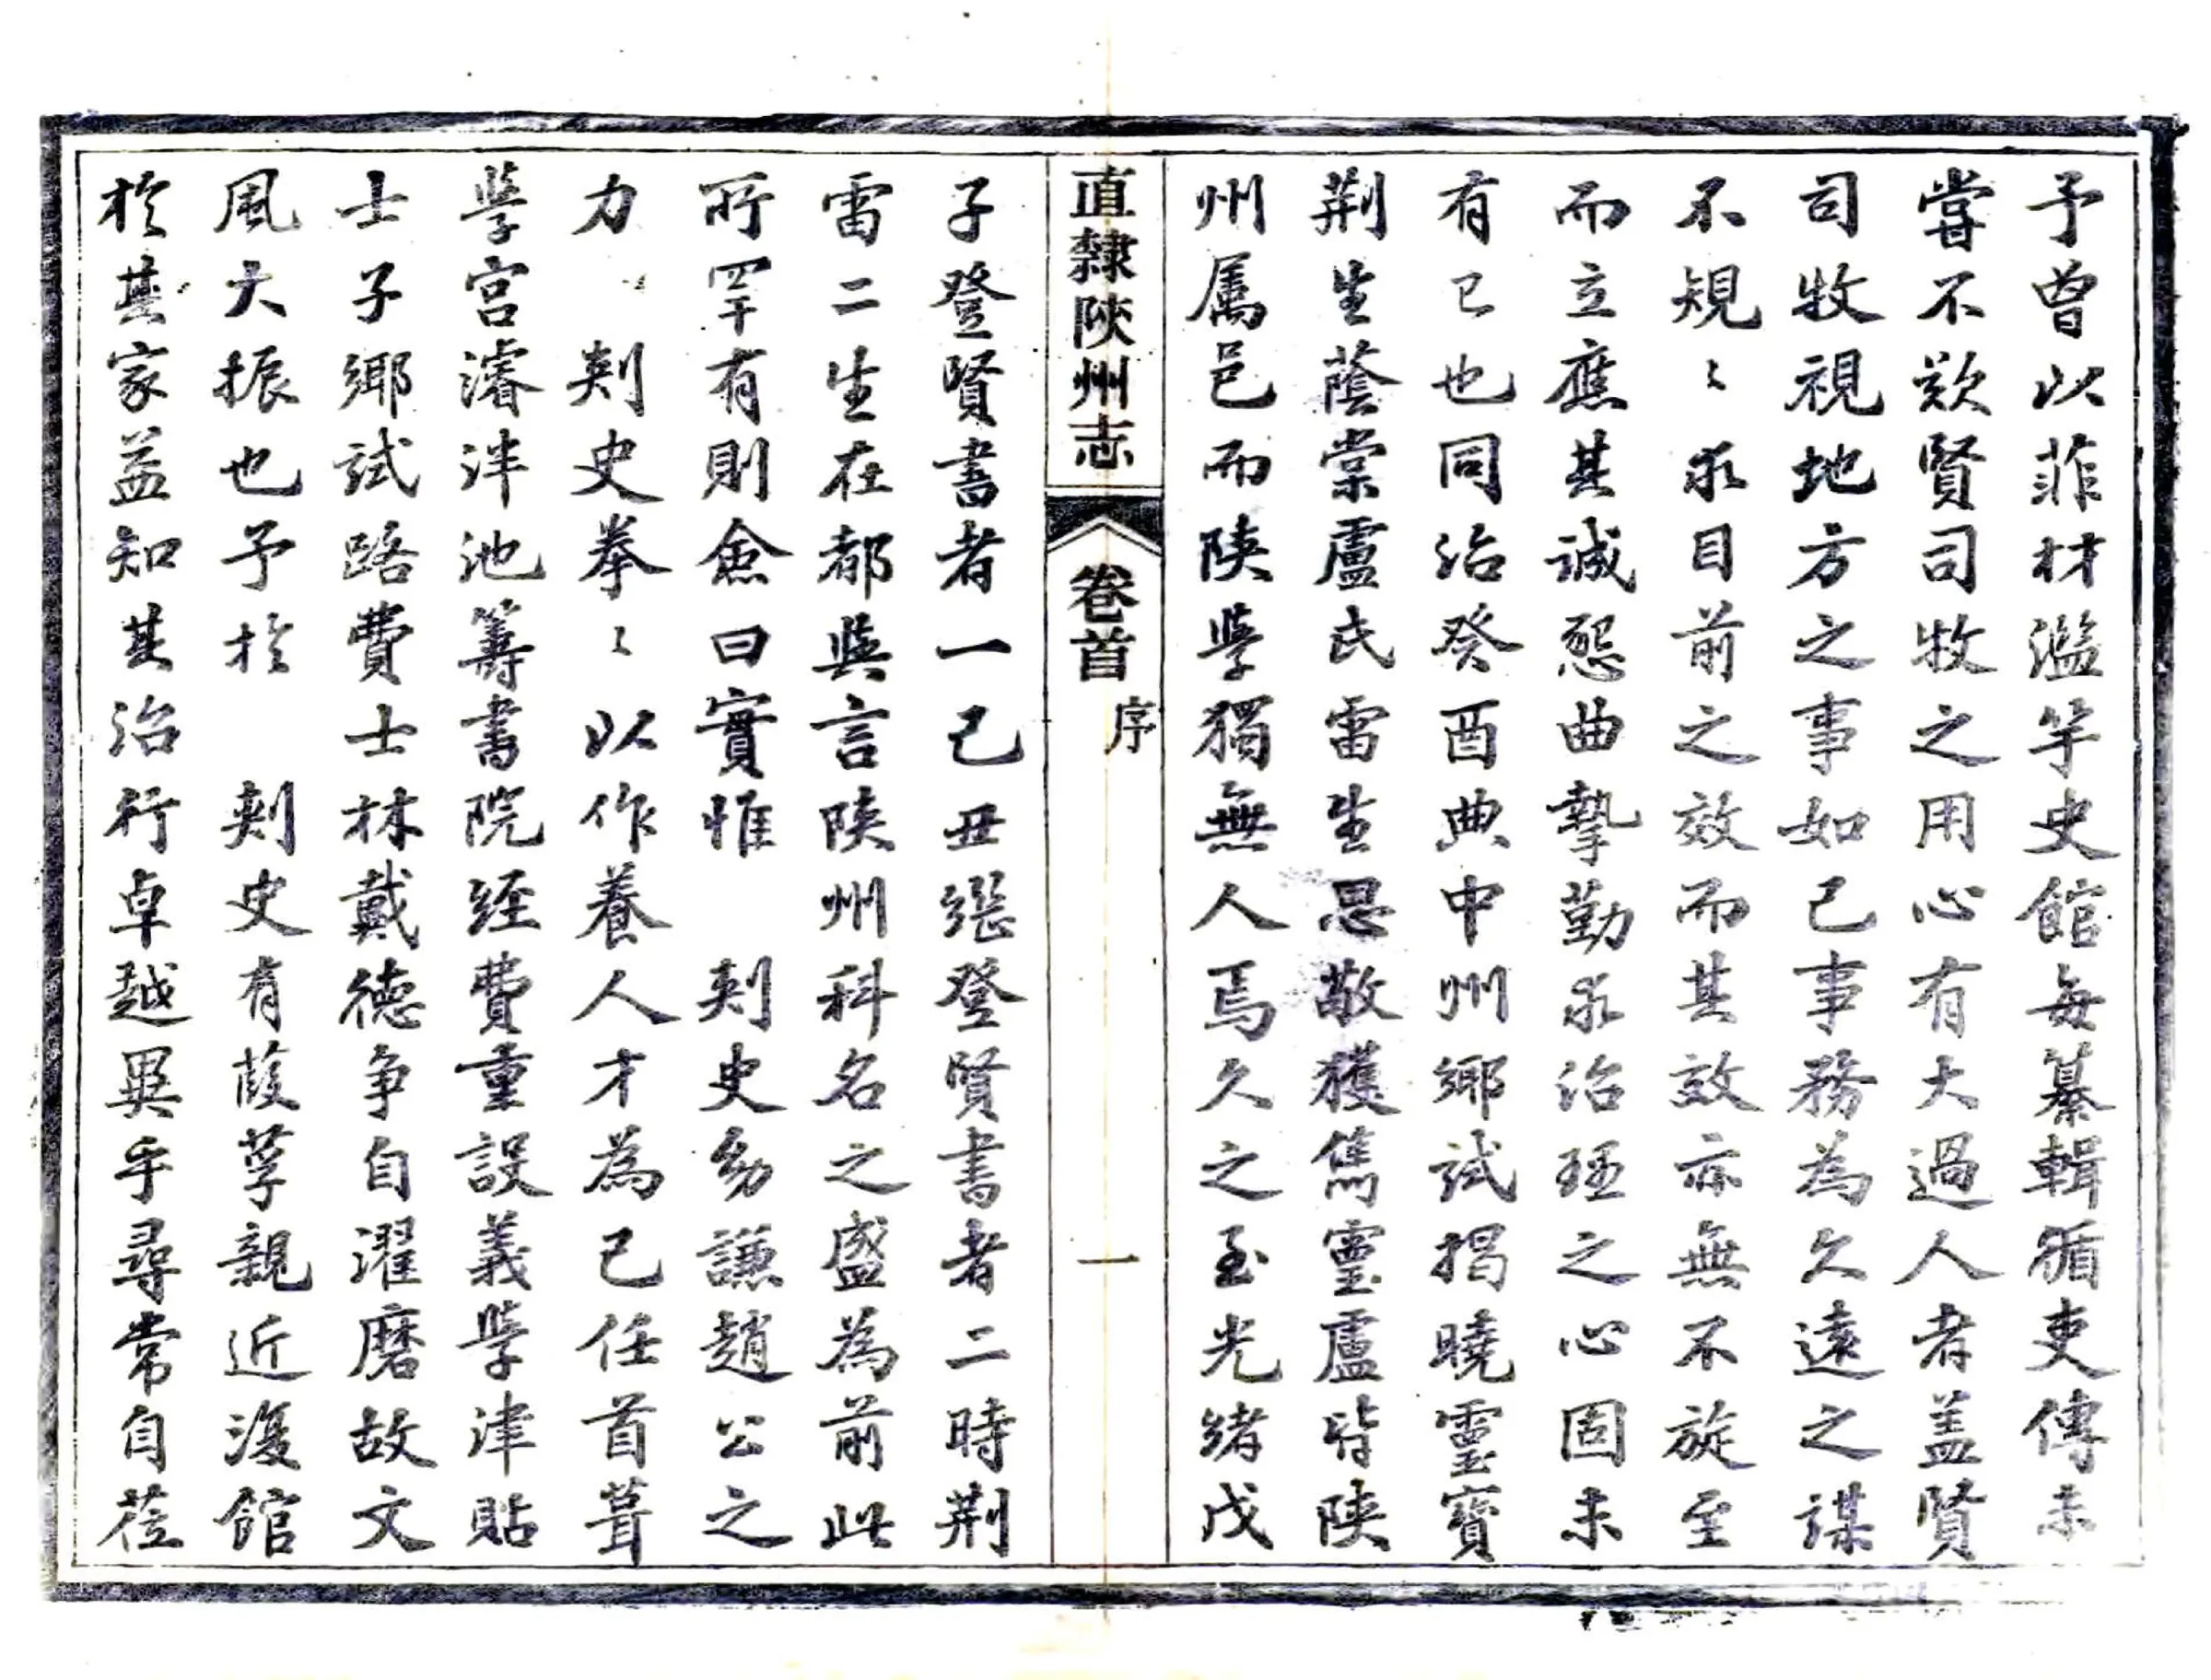 予曾以菲材濫竽史館每纂輯循吏傳未
嘗不歎賢司牧之用心有大過人者盖賢
司牧視地方之事如己事務為久遠之謀
不規〻求目前之效而其效亦無不旋至
而立應其誠懇曲摯勤求治理之心固未
有已也同治癸酉典中州鄉試揭曉靈寶
荆生蔭棠盧氏雷生思敬獲雋靈盧皆陝
州属邑而陝學獨無人焉久之至光緒戊
直隸陝州志
卷首
序
一
子登賢書者一己丑繼登賢書者二時荆
雷二生在都與言陝州科名之盛為前此
所罕有則僉曰實惟 刺史幼謙趙公之
力 刺史拳〻以作養人才為己任首葺
學宫濬泮池籌書院經費重設義學津貼
士子鄉試路費士林戴德争自濯磨故文
風大振也予於 刺史有葭莩親近復館
於其家益知其治行卓越異乎尋常自莅